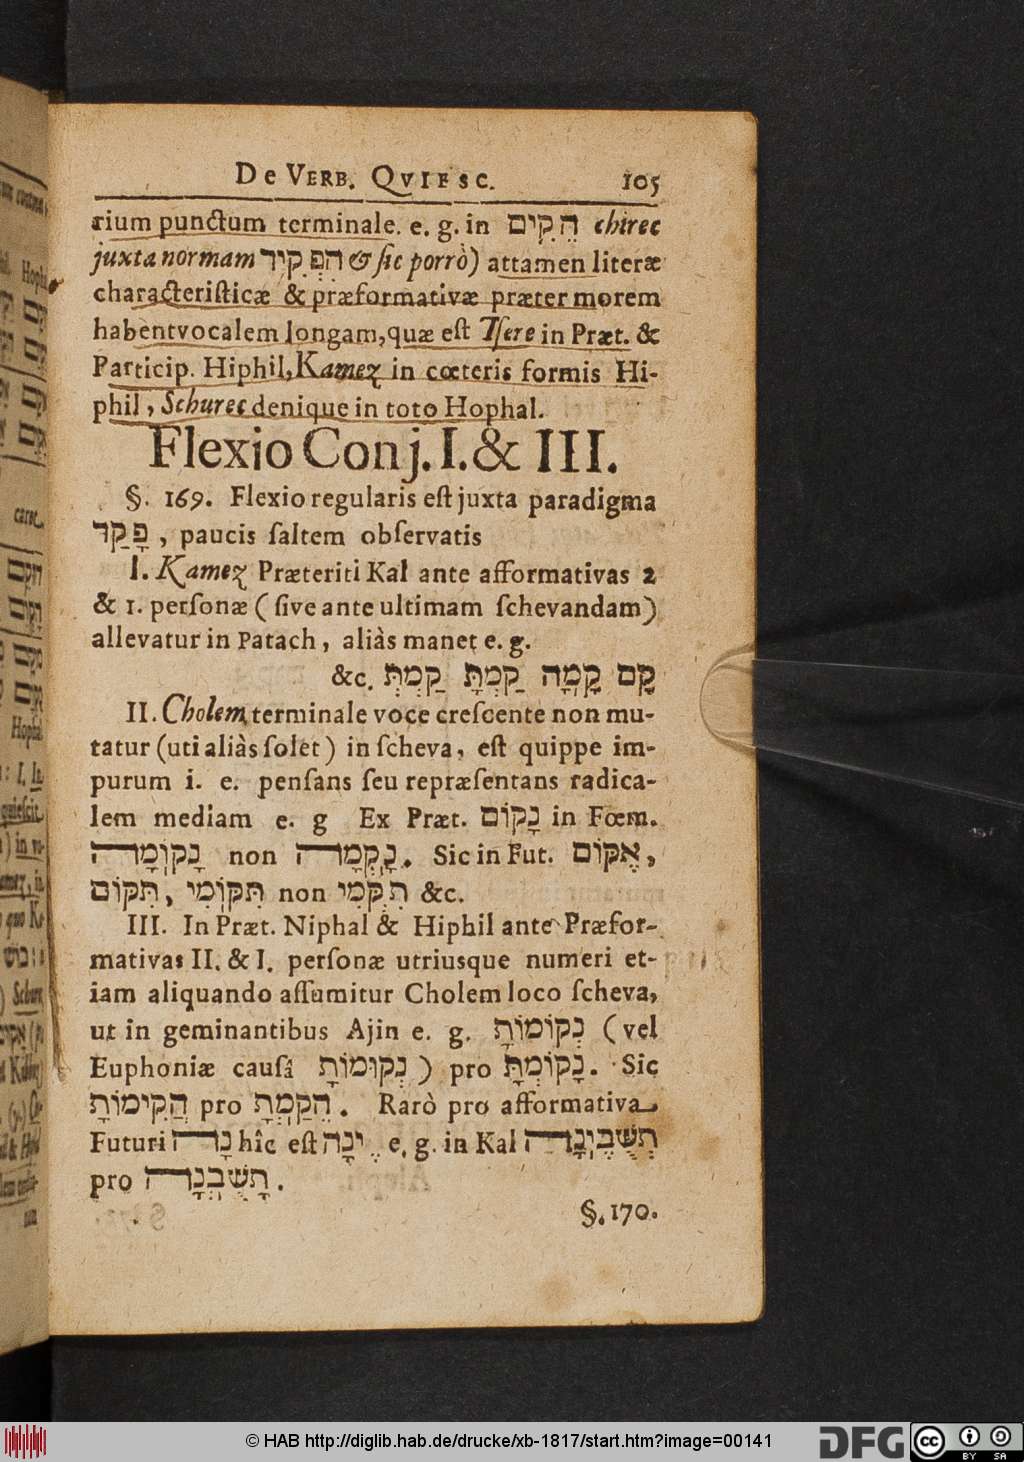 De Verb. Qviesc. 105
rium punctum terminale. e. g. in הֵקִים chirec
juxta normam הִפְקִיד & ſic porrò) attamen literæ
characteriſticæ & præformativæ præter morem
habent vocalem longam, quæ eſt Tſere in Præt. &
Particip. Hiphil, Kamez in cœteris formis Hi-
phil, Schurec denique in toto Hophal.
Flexio Conj. I. & III.
§. 169. Flexio regularis eſt juxta paradigma
פָּקַד, paucis ſaltem obſervatis
I. Kamez Præteriti Kal ante afformativas 2
& 1. perſonæ (ſive ante ultimam ſchevandam)
allevatur in Patach, aliàs manet e. g.
קָם קָמָה קַמְתָּ קַמְתְּ &c.
II. Cholem terminale voce creſcente non mu-
tatur (uti aliàs ſolet) in ſcheva, eſt quippe im-
purum i. e. penſans ſeu repræſentans radica-
lem mediam e. g Ex Præt. נָקוֹם in Fœm.
נָקוֹמָה non נָקְמָה. Sic in Fut. אֶקּוֹם,
תִּקּוֹם, תִּקּוֹמִי non תִקְּמִי &c.
III. In Præt. Niphal & Hiphil ante Præfor-
mativas II. & I. perſonæ utriusque numeri et-
iam aliquando aſſumitur Cholem loco ſcheva,
ut in geminantibus Ajin e. g. נְקוֹמוֹתָ (vel
Euphoniæ cauſâ נְקוּמוֹתָ) pro נָקוֹמְתָּ. Sic
הֲקִימוֹתָ pro הֵקַמְתָּ. Rarò pro afformativa
Futuri נָה hîc eſt ֶינָה e. g. in Kal תְּשֻׁבֶינָה
pro תָּשֻׁבְנָה.
§. 170.
© HAB http://diglib.hab.de/drucke/xb-1817/start.htm?image=00141
DFG cc BY SA